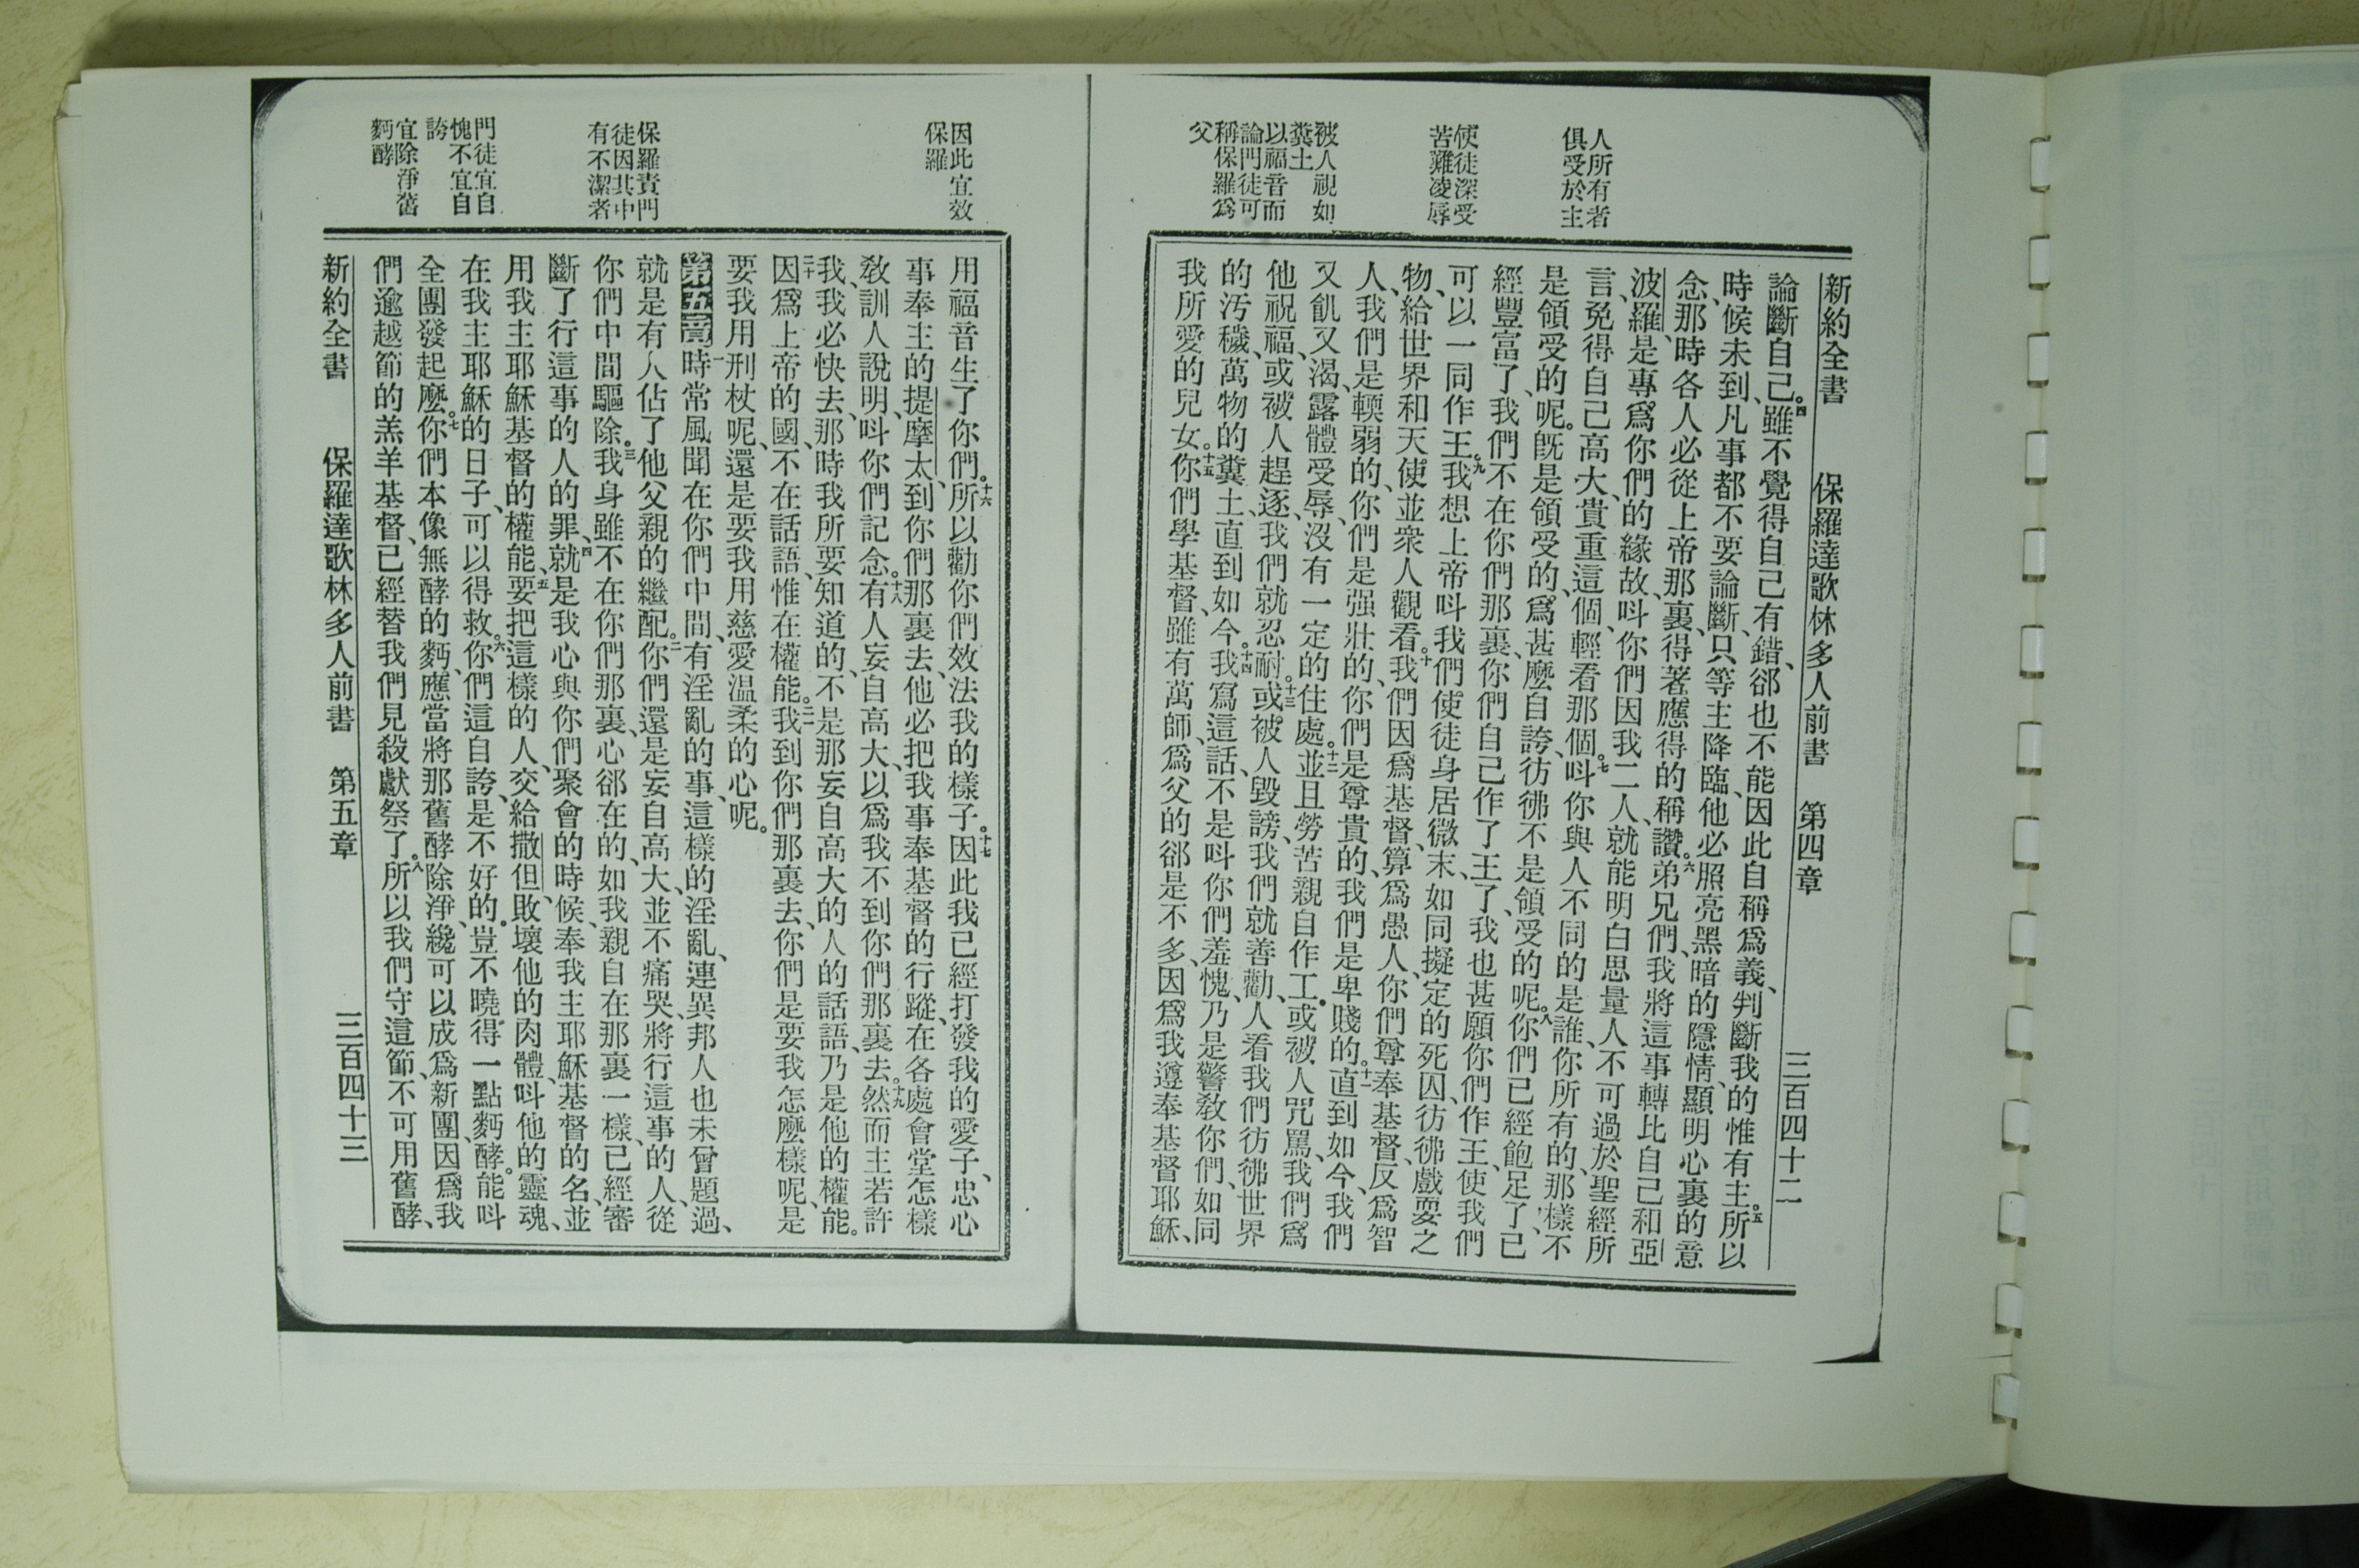 人所有者
俱受於主
使徒深受
苦難凌辱
被人視如
糞土
以福音而
論門徒可
稱保羅爲
父
新約全書 保羅達歌林多人前書 第四章 三百四十二
論斷自己。四雖不覺得自己有錯、郤也不能因此自稱爲義、判斷我的惟有主。五所以
時候未到、凡事都不要論斷、只等主降臨、他必照亮黑暗的隱情、顯明心裏的意
念、那時各人必從上帝那裏、得著應得的稱讚。六弟兄們、我將這事轉比自己和亞
波羅、是專爲你們的緣故、呌你們因我二人、就能明白思量人不可過於聖經所
言、免得自己高大、貴重這個、輕看那個。七呌你與人不同的是誰、你所有的、那樣不
是領受的呢。旣是領受的、爲甚麼自誇、彷彿不是領受的呢。八你們已經飽足了、已
經豐富了、我們不在你們那裏、你們自己作了王了、我也甚願你們作王、使我們
可以一同作王。九我想上帝呌我們使徒身居微末、如同擬定的死囚、彷彿戲耍之
物、給世界和天使、並衆人觀看。十我們因爲基督、算爲愚人、你們尊奉基督、反爲智
人、我們是輭弱的、你們是强壯的、你們是尊貴的、我們是卑賤的。十一直到如今、我們
又飢又渴、露體受辱、沒有一定的住處。十二並且勞苦親自作工、或被人咒駡、我們爲
他祝福、或被人趕逐、我們就忍耐。十三或被人毀謗、我們就善勸、人看我們彷彿世界
的汚穢、萬物的糞土、直到如今。十四我寫這話、不是呌你們羞愧、乃是警敎你們、如同
我所愛的兒女。十五你們學基督、雖有萬師、爲父的郤是不多、因爲我遵奉基督耶穌、
因此宜效
保羅
保羅責門
徒因其中
有不潔者
門徒宜自
愧不宜自
誇
宜除淨舊
麪酵
用福音生了你們。十六所以勸你們效法我的樣子。十七因此我已經打發我的愛子、忠心
事奉主的提摩太、到你們那裏去、他必把我事奉基督的行蹤、在各處會堂怎樣
敎訓人說明、呌你們記念。十八有人妄自高大、以爲我不到你們那裏去。十九然而主若許
我、我必快去、那時我所要知道的、不是那妄自高大的人的話語、乃是他的權能。
二十因爲上帝的國、不在話語、惟在權能。二一我到你們那裏去、你們是要我怎麼樣呢、是
要我用刑杖呢、還是要我用慈愛温柔的心呢。
第五章一時常風聞在你們中間、有淫亂的事、這樣的淫亂、連異邦人也未曾題過、
就是有人佔了他父親的繼配。二你們還是妄自高大、並不痛哭、將行這事的人、從
你們中間驅除。三我身雖不在你們那裏、心郤在的、如我親自在那裏一樣、已經審
斷了行這事的人的罪、四就是我心與你們聚會的時候、奉我主耶穌基督的名、並
用我主耶穌基督的權能、五要把這樣的人、交給撒但、敗壞他的肉體、呌他的靈魂、
在我主耶穌的日子、可以得救。六你們這自誇、是不好的。豈不曉得一點麪酵。能呌
全團發起麼。七你們本像無酵的麪、應當將那舊酵除淨、纔可以成爲新團、因爲我
們逾越節的羔羊基督、已經替我們見殺獻祭了。八所以我們守這節、不可用舊酵、
新約全書 保羅達歌林多人前書 第五章 三百四十三